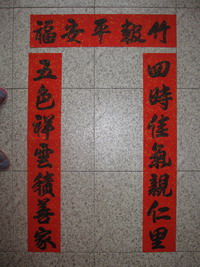 竹報平安福
四時佳氣親仁里
五色祥雲積善家